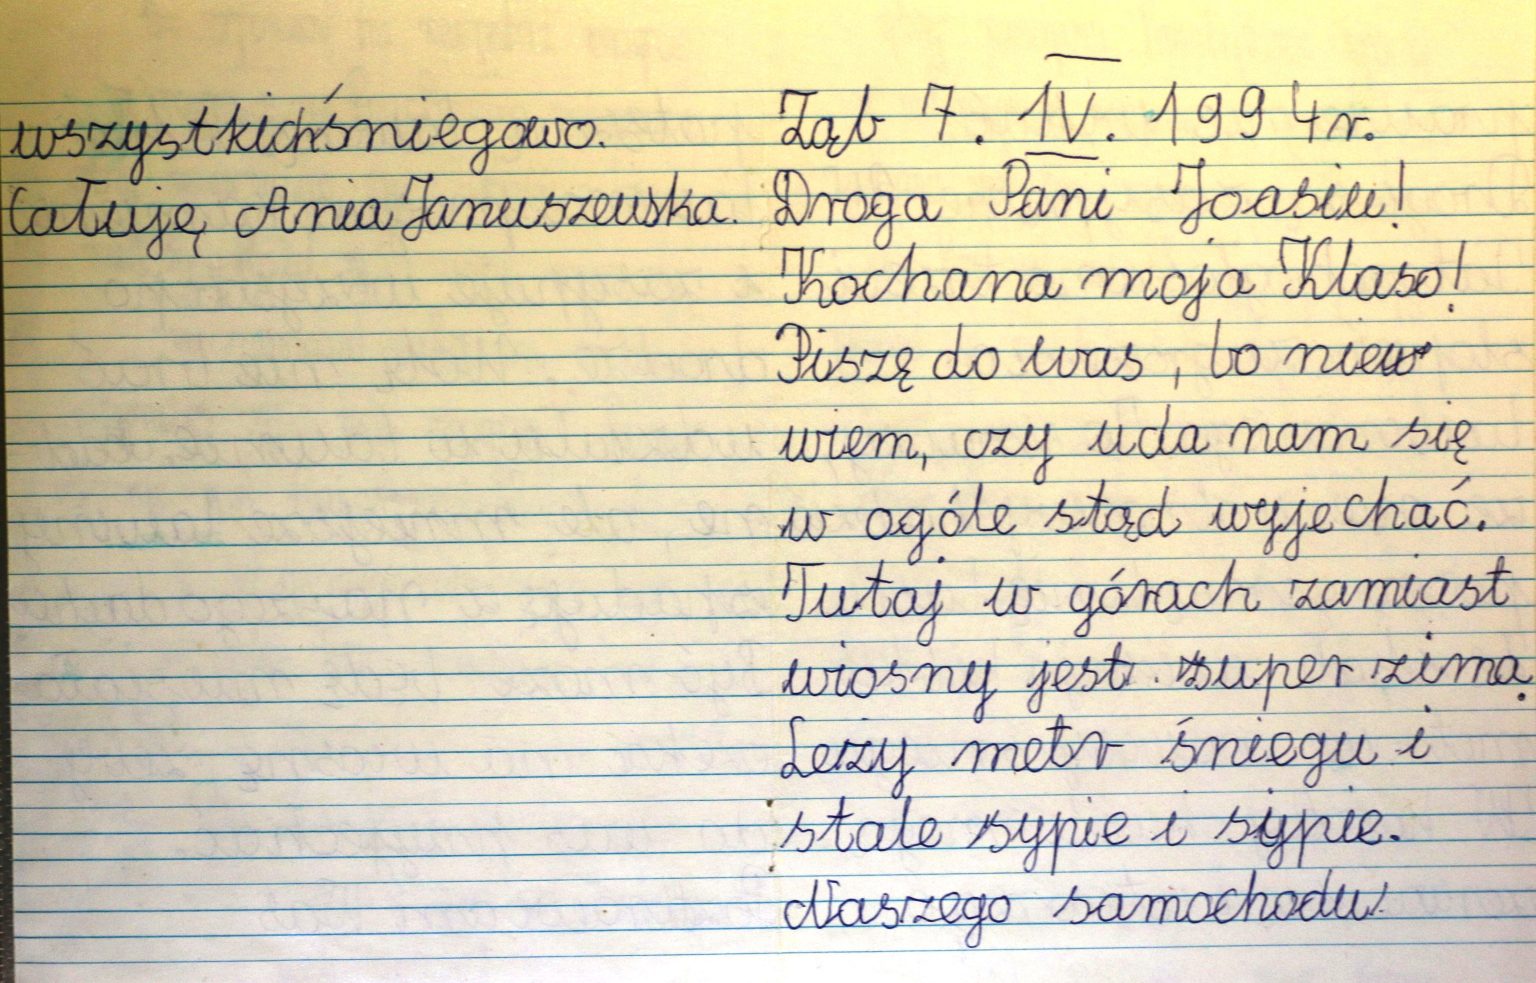 wszystkich śniegowo.
Całuję, Ania Januszewska.
Ząb 7. IV. 1994 r.
Droga Pani Joasiu!
Kochana moja Klaso!
Piszę do was, bo nie
wiem, czy uda nam się
w ogóle stąd wyjechać.
Tutaj w górach zamiast
wiosny jest super zima.
Leży metr śniegu i
stale sypie i sypie.
Naszego samochodu